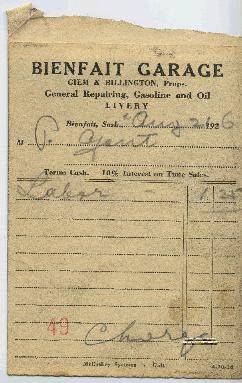 BIENFAIT GARAGE
GIEM & BILLINGTON, Props.
General Repairing, Gasoline and Oil
LIVERY
Bienfait, Sask Aug 26 1926
M P.
Terms Cash. 10% Interest on Time Sales.
Labor 1 25
49
Charge